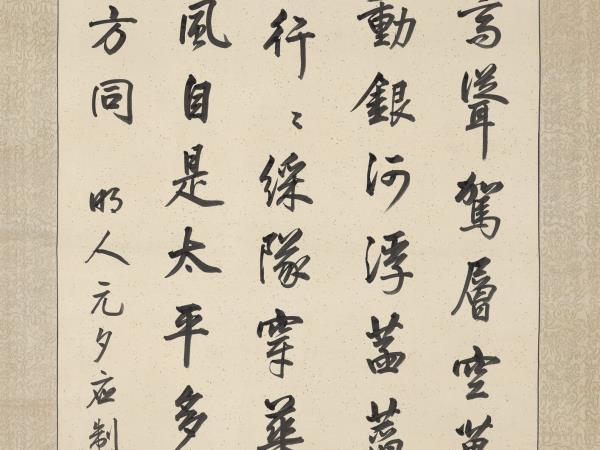 高聳駕層空萬
動銀河浮菡萏
行〻綵隊穿華
風自是太平多
方同
明人元夕应制